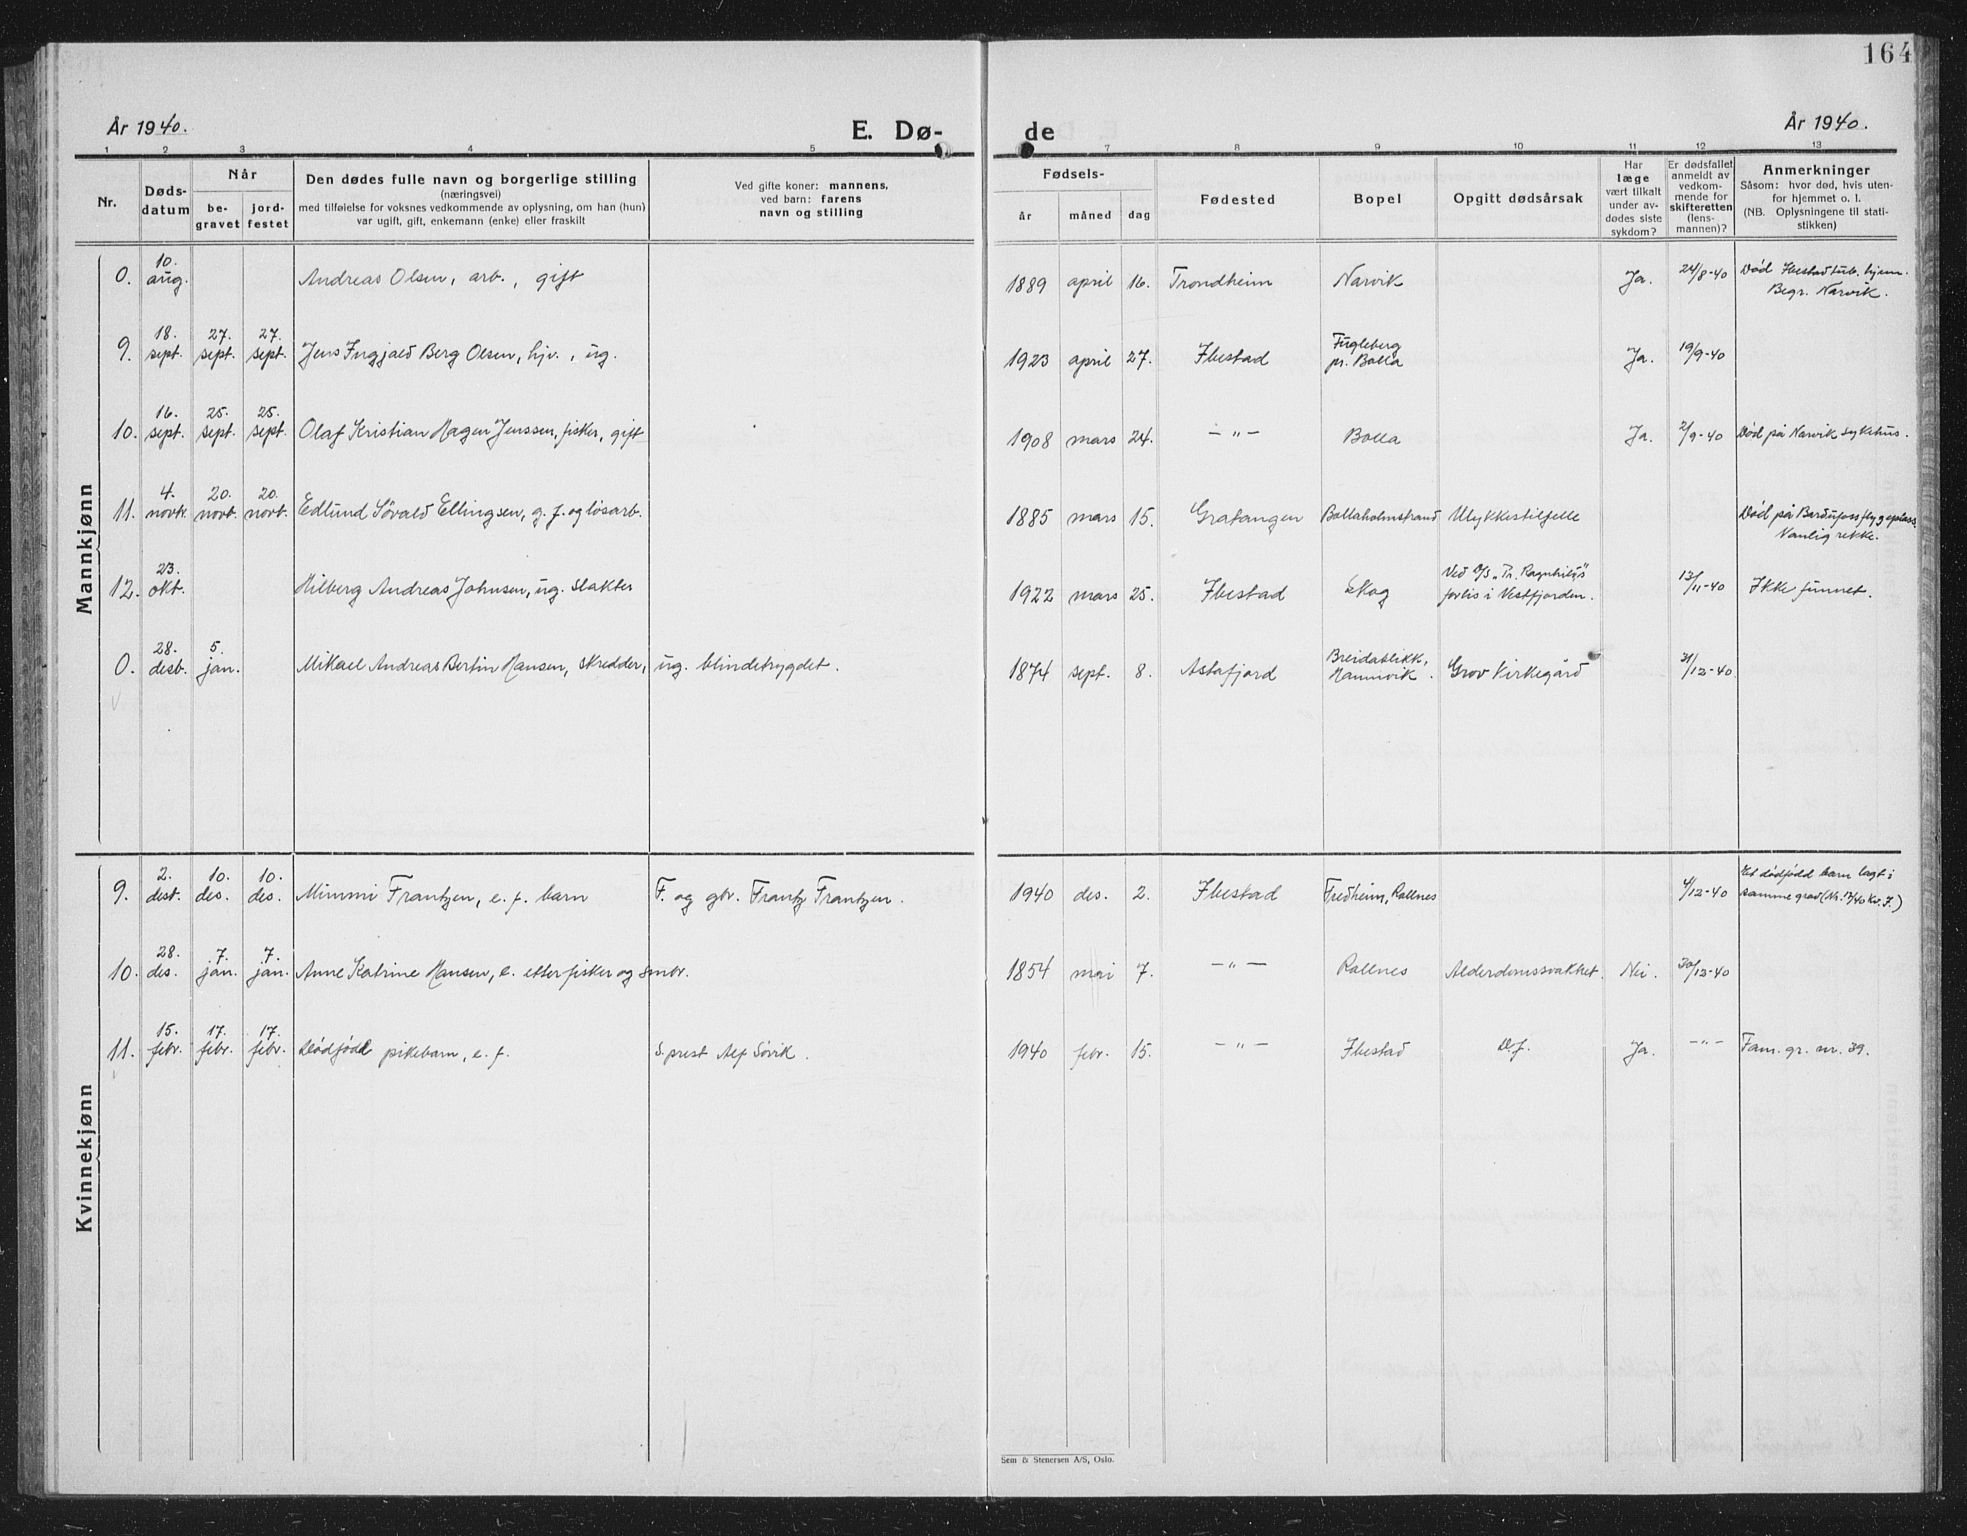 164
År 1940.
E. Dø-
de
År 1940.
1 2 3 4 5 7 8 9 10 11 12 13
Nr.
Døds-
datum
Når
be-
gravet
jord-
festet
Den dødes fulle navn og borgerlige stilling
(næringsvei)
med tilføielse for voksnes vedkommende av oplysning, om han (hun)
var ugift, gift, enkemann (enke) eller fraskilt
Ved gifte koner: mannens,
ved barn: farens
navn og stilling
Fødsels-
år måned dag
Fødested
Bopel
Opgitt dødsårsak
Har
læge
vært tilkalt
under av-
dødes siste
sykdom?
Er dødsfallet
anmeldt av
vedkom-
mende for
skifteretten
(lens-
mannen)?
Anmerkninger
Såsom: hvor død, hvis uten-
for hjemmet o. l.
(NB. Oplysningene til stati-
stikken)
Mannkjønn
0. 10. aug. Andreas Olsen, arb., gift 1889 april 16. Trondheim Narvik Ja. 24/8-40 Død Ibestad tub. hjem.
Begr. Narvik.
9. 18. sept. 27. sept. 27. sept. Jens Ingjald Berg Olsen, hjv., ug. 1923 april 27. Ibestad Fugleberg
pr. Bolla Ja. 19/9-40
10. 16. sept. 25. sept. 25. sept. Olaf Kristian Hagen Jenssen, fisker, gift 1908 mars 24. —"— Bolla Ja. 21/9-40 Død på Narvik sykehus.
11. 4. novbr. 20. novb. 20. novb. Edlund Søvald Ellingsen, g. f. og løsarb. 1885 mars 15. Gratangen Bollaholmstrand Ulykkestilfelle Død på Bardufoss flygeplass
Vanlig rekke.
12. 23. okt. Hilberg Andreas Johnsen, ug. slakter 1922 mars 25. Ibestad Skog Ved D/S "Pr. Ragnhild's"
forlis i Vestfjorden. 13/11-40 Ikke funnet.
0. 28. desb. 5. jan. Mikael Andreas Bertin Hansen, skredder, ug. blindetrygdet. 1874 sept. 8. Astafjord Breidablikk,
Hamnvik. Grov kirkegård 31/12-40
Kvinnekjønn
9. 2. des. 10. des. 10. des. Mimmi Frantzen, e. f. barn F. og gbr. Frantz Frantzen. 1940 des. 2. Ibestad Fredheim, Rollnes 4/12-40 Et dødfødd barn lagt i
samme grav
10. 28. des. 7. jan. 7. jan. Anne Katrine Hansen, e. etter fisker og smbr. 1854 mai 7. —"— Rollnes Alderdomssvakhet. Nei. 30/12-40
11. 15. febr. 17. febr. 17. febr. Dødfødd pikebarn, e. f. S. prest Alf Søvik. 1940 febr. 15. —"— Ibestad D.f. Ja. —"— Fam. gr. nr. 39.
Sem & Stenersen A/S, Oslo.